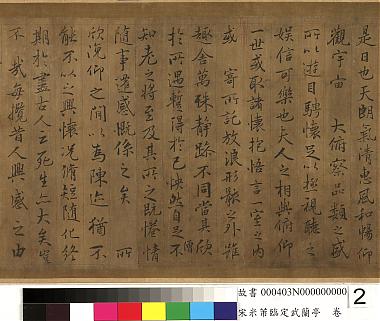 是日也天朗氣清惠風和暢仰
觀宇宙 大俯察品類之盛
所以遊目騁懷足以極視聽之
娛信可樂也夫人之相與俯仰
一世或取諸懷抱悟言一室之內
或 寄所託放浪形骸之外雖
趣舍萬殊靜躁不同當其欣
於所遇暫得於己怏然自足不
僧
知老之將至及其所之既惓情
隨事遷感慨係之矣 所
欣俛仰之間以為陳迹猶不
能不以之興懷況脩短隨化終
期於盡古人云死生亦大矣豈
不 哉每攬昔人興感之由
故書 000403N000000000
宋米芾臨定武蘭亭 卷
2